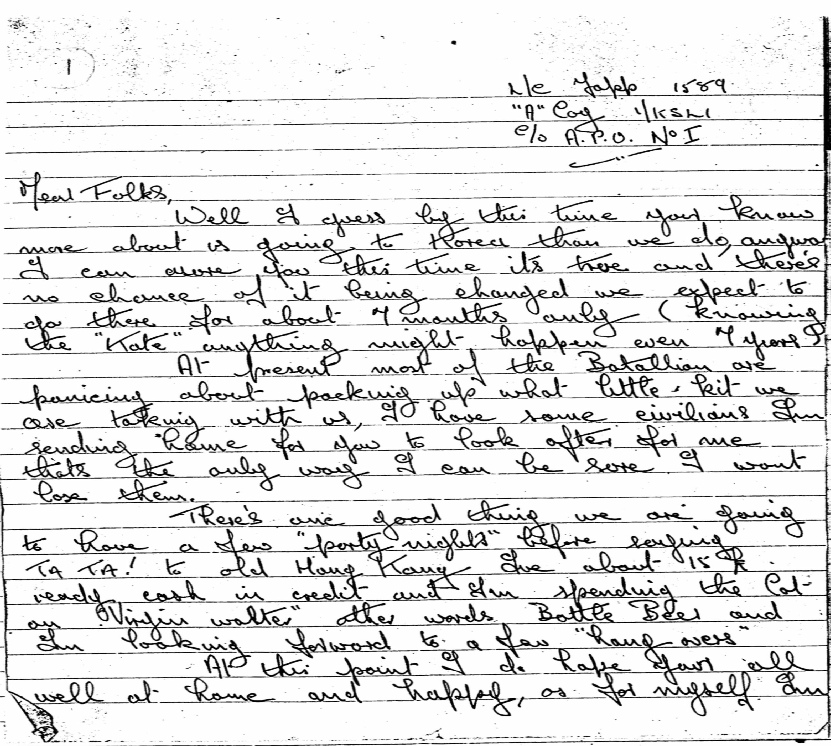 1
L/c Japp 1589
"A" Coy 1/KSLI
c/o A.P.O. No 1
Dear Folks,
Well I guess by this time your know
more about us going to Korea than we do, anyway
I can asore you this time its true and there's
no chance of it being changed we expect to
go there for about 7 months only (knowing
the "Kate" anything might happen even 7 years?
At present most of the Batallion are
panicing about packing up what little kit we
are taking with us, I have some civilians Im
sending home for you to look after for me
thats the only way I can be sore I wont
lose them.
There's one good thing we are going
to have a few "party nights" before saying
TA TA! to old Hong Kong Ive about 15
ready cash in credit and Im spending the Lot
on "Virgin water" other words Bottle Beer and
Im looking forward to a few "hang overs"
At this point I do hope your all
well at home and happy, as for myself Im